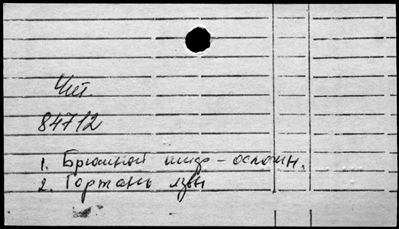 Чит.
84712
1. Брюшной тиф - осложн.
2. Гортань язвы